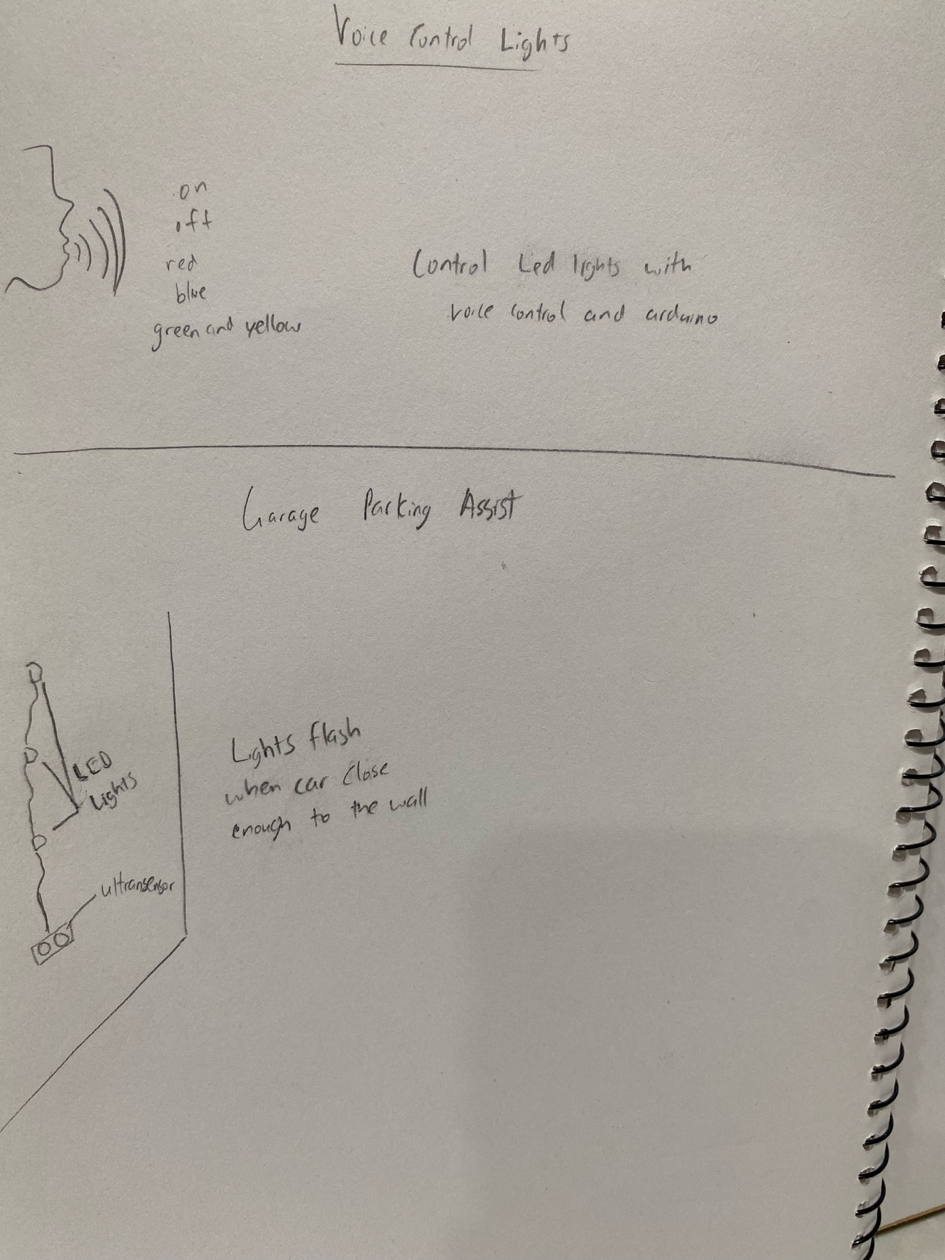 Voice Control Lights
on
off
red
blue
green and yellow
Control Led lights with
voice control and arduino
Garage Parking Assist
LED
Lights
ultrasensor
Lights flash
when car close
enough to the wall